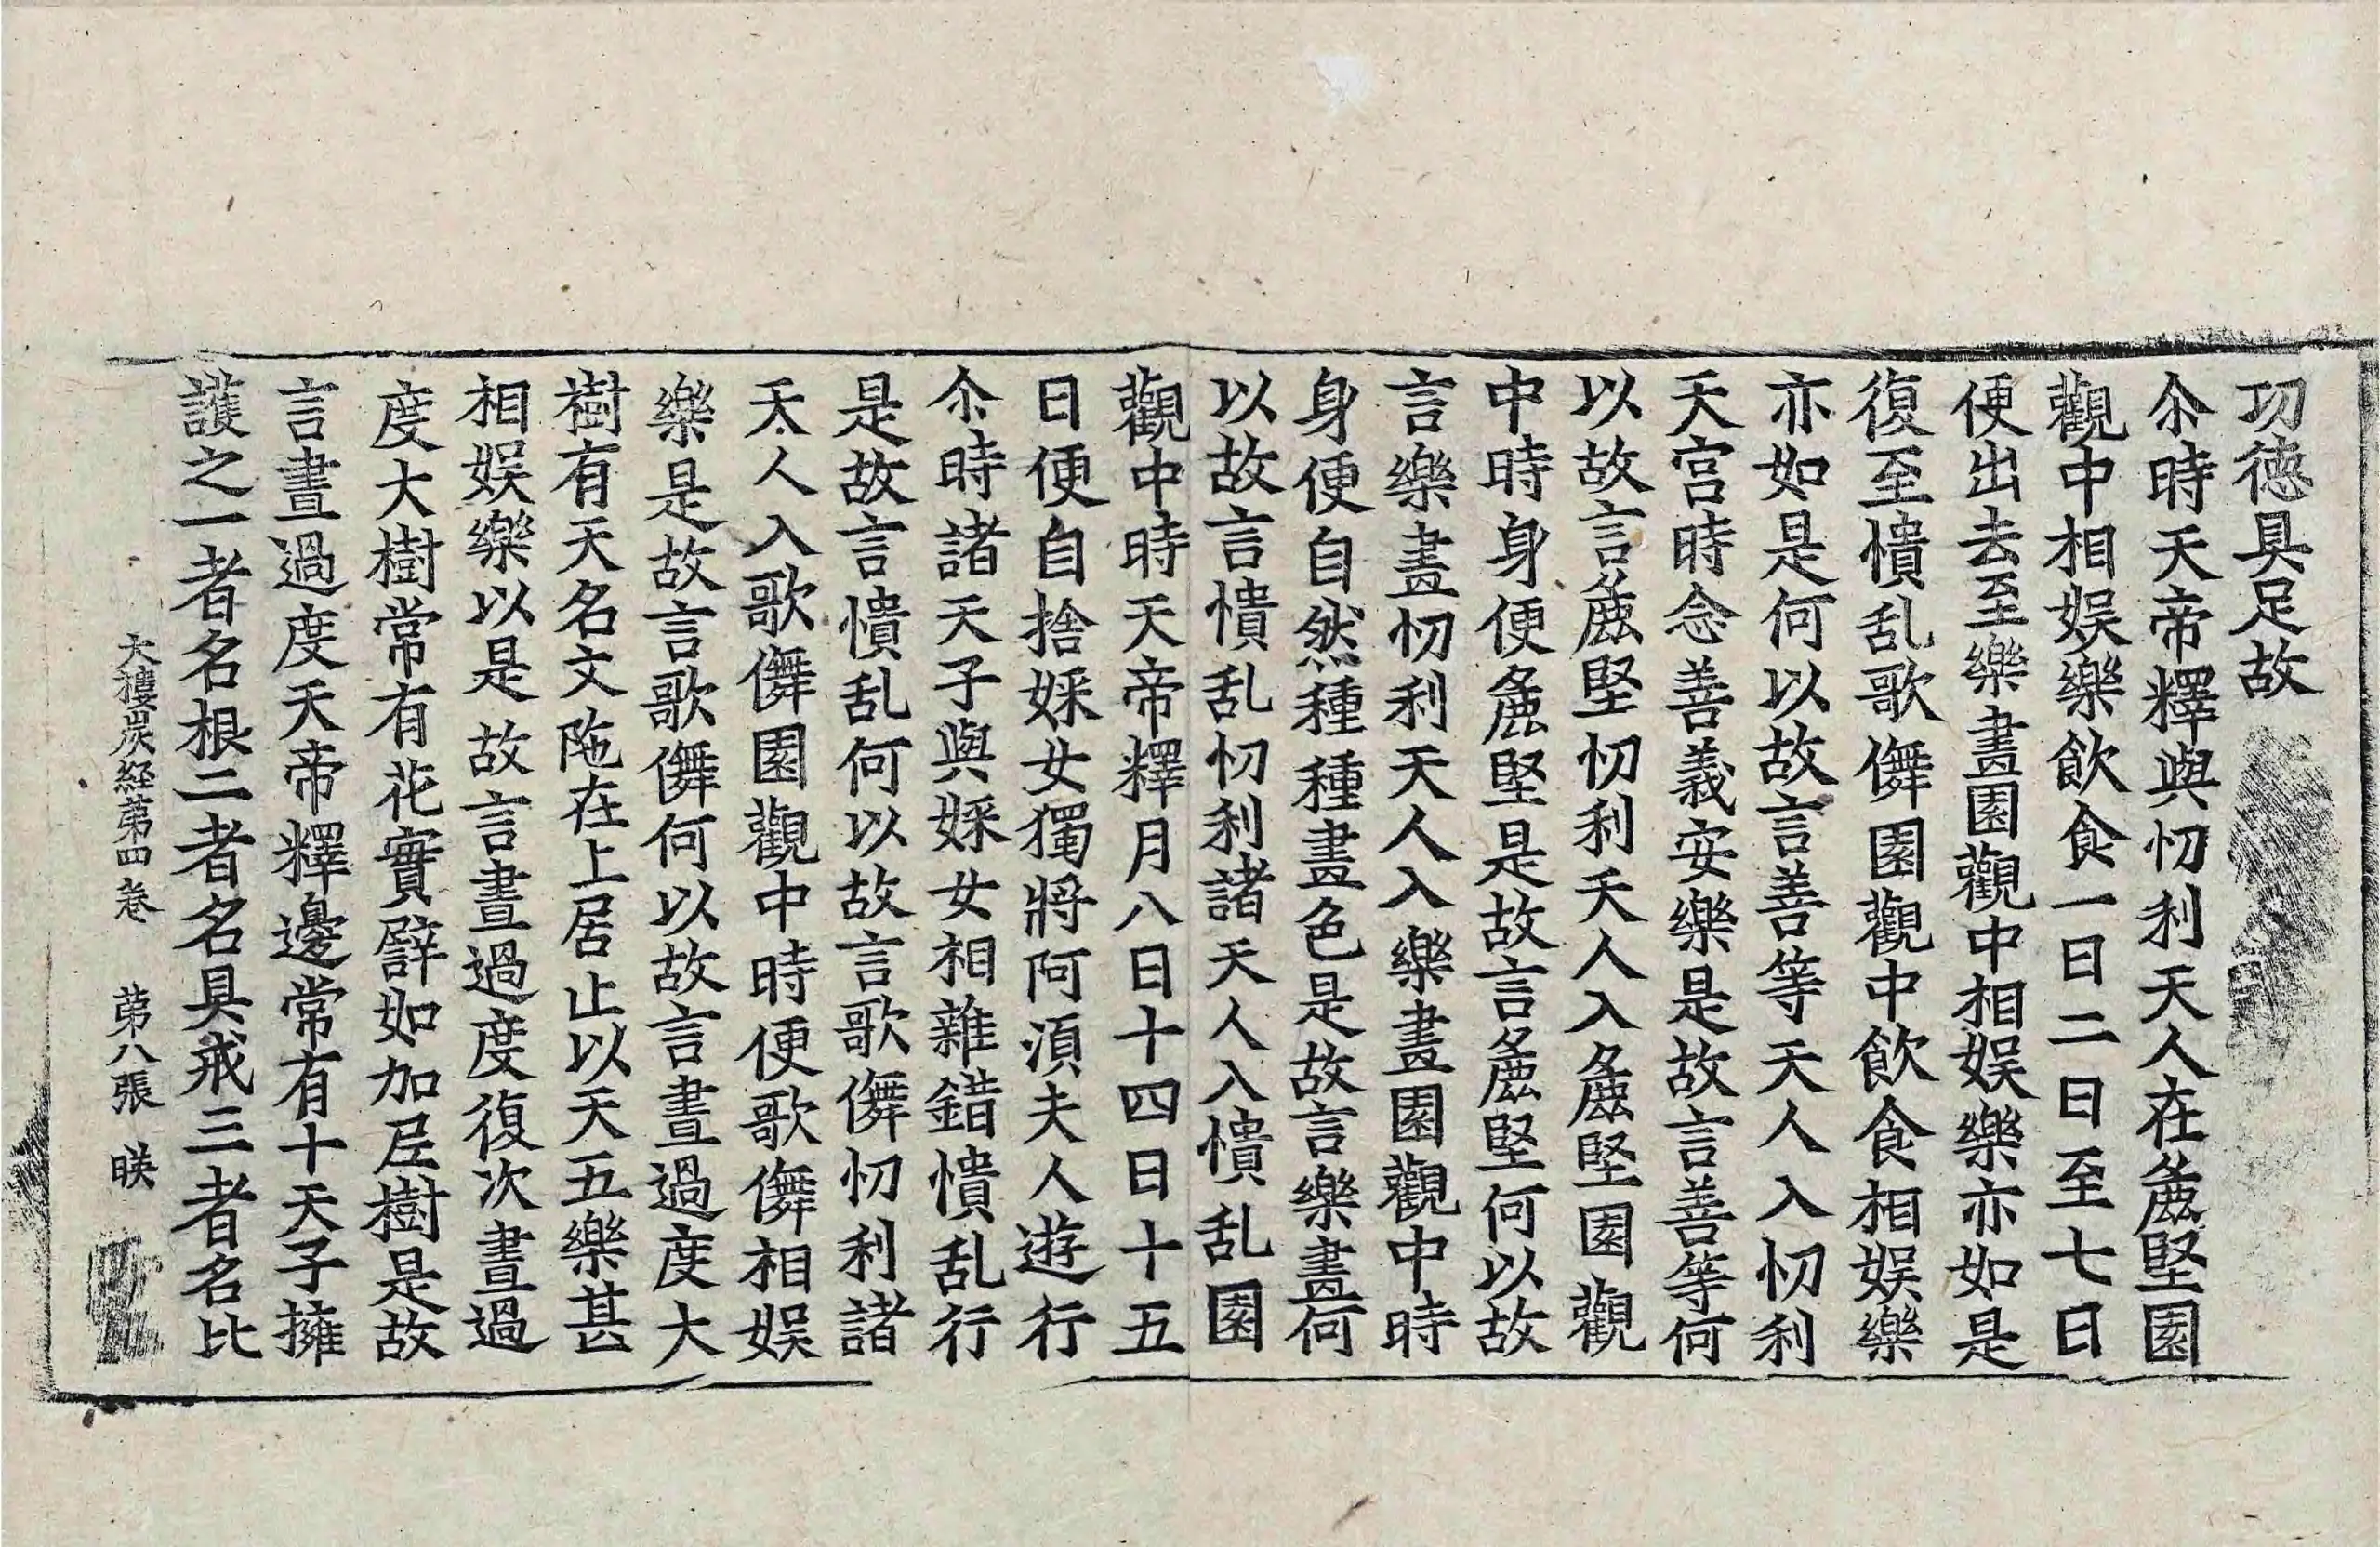 功德具足故
尒時天帝釋與忉利天人在麁堅園
觀中相娱樂飲食一日二日至七日
便出去至樂畫園觀中相娱樂亦如是
復至憒乱歌儛園觀中飲食相娱樂
亦如是何以故言善等天人入忉利
天宫時念善義安樂是故言善等何
以故言麁堅忉利天人入麁堅園觀
中時身便麁堅是故言麁堅何以故
言樂畫忉利天人入樂畫園觀中時
身便自然種種畫色是故言樂畫何
以故言憒乱忉利諸天人入憒乱園
觀中時天帝釋月八日十四日十五
日便自捨婇女獨將阿湏夫人遊行
尒時諸天子與婇女相雜錯憒乱行
是故言憒乱何以故言歌儛忉利諸
天人入歌儛園觀中時便歌儛相娱
樂是故言歌儛何以故言晝過度大
樹有天名文陁在上居止以天五樂甚
相娱樂以是故言晝過度復次晝過
度大樹常有花實譬如加𡱝樹是故
言晝過度天帝釋邊常有十天子擁
護之一者名根二者名具戒三者名比
大樓炭経苐四卷 苐八張 暎